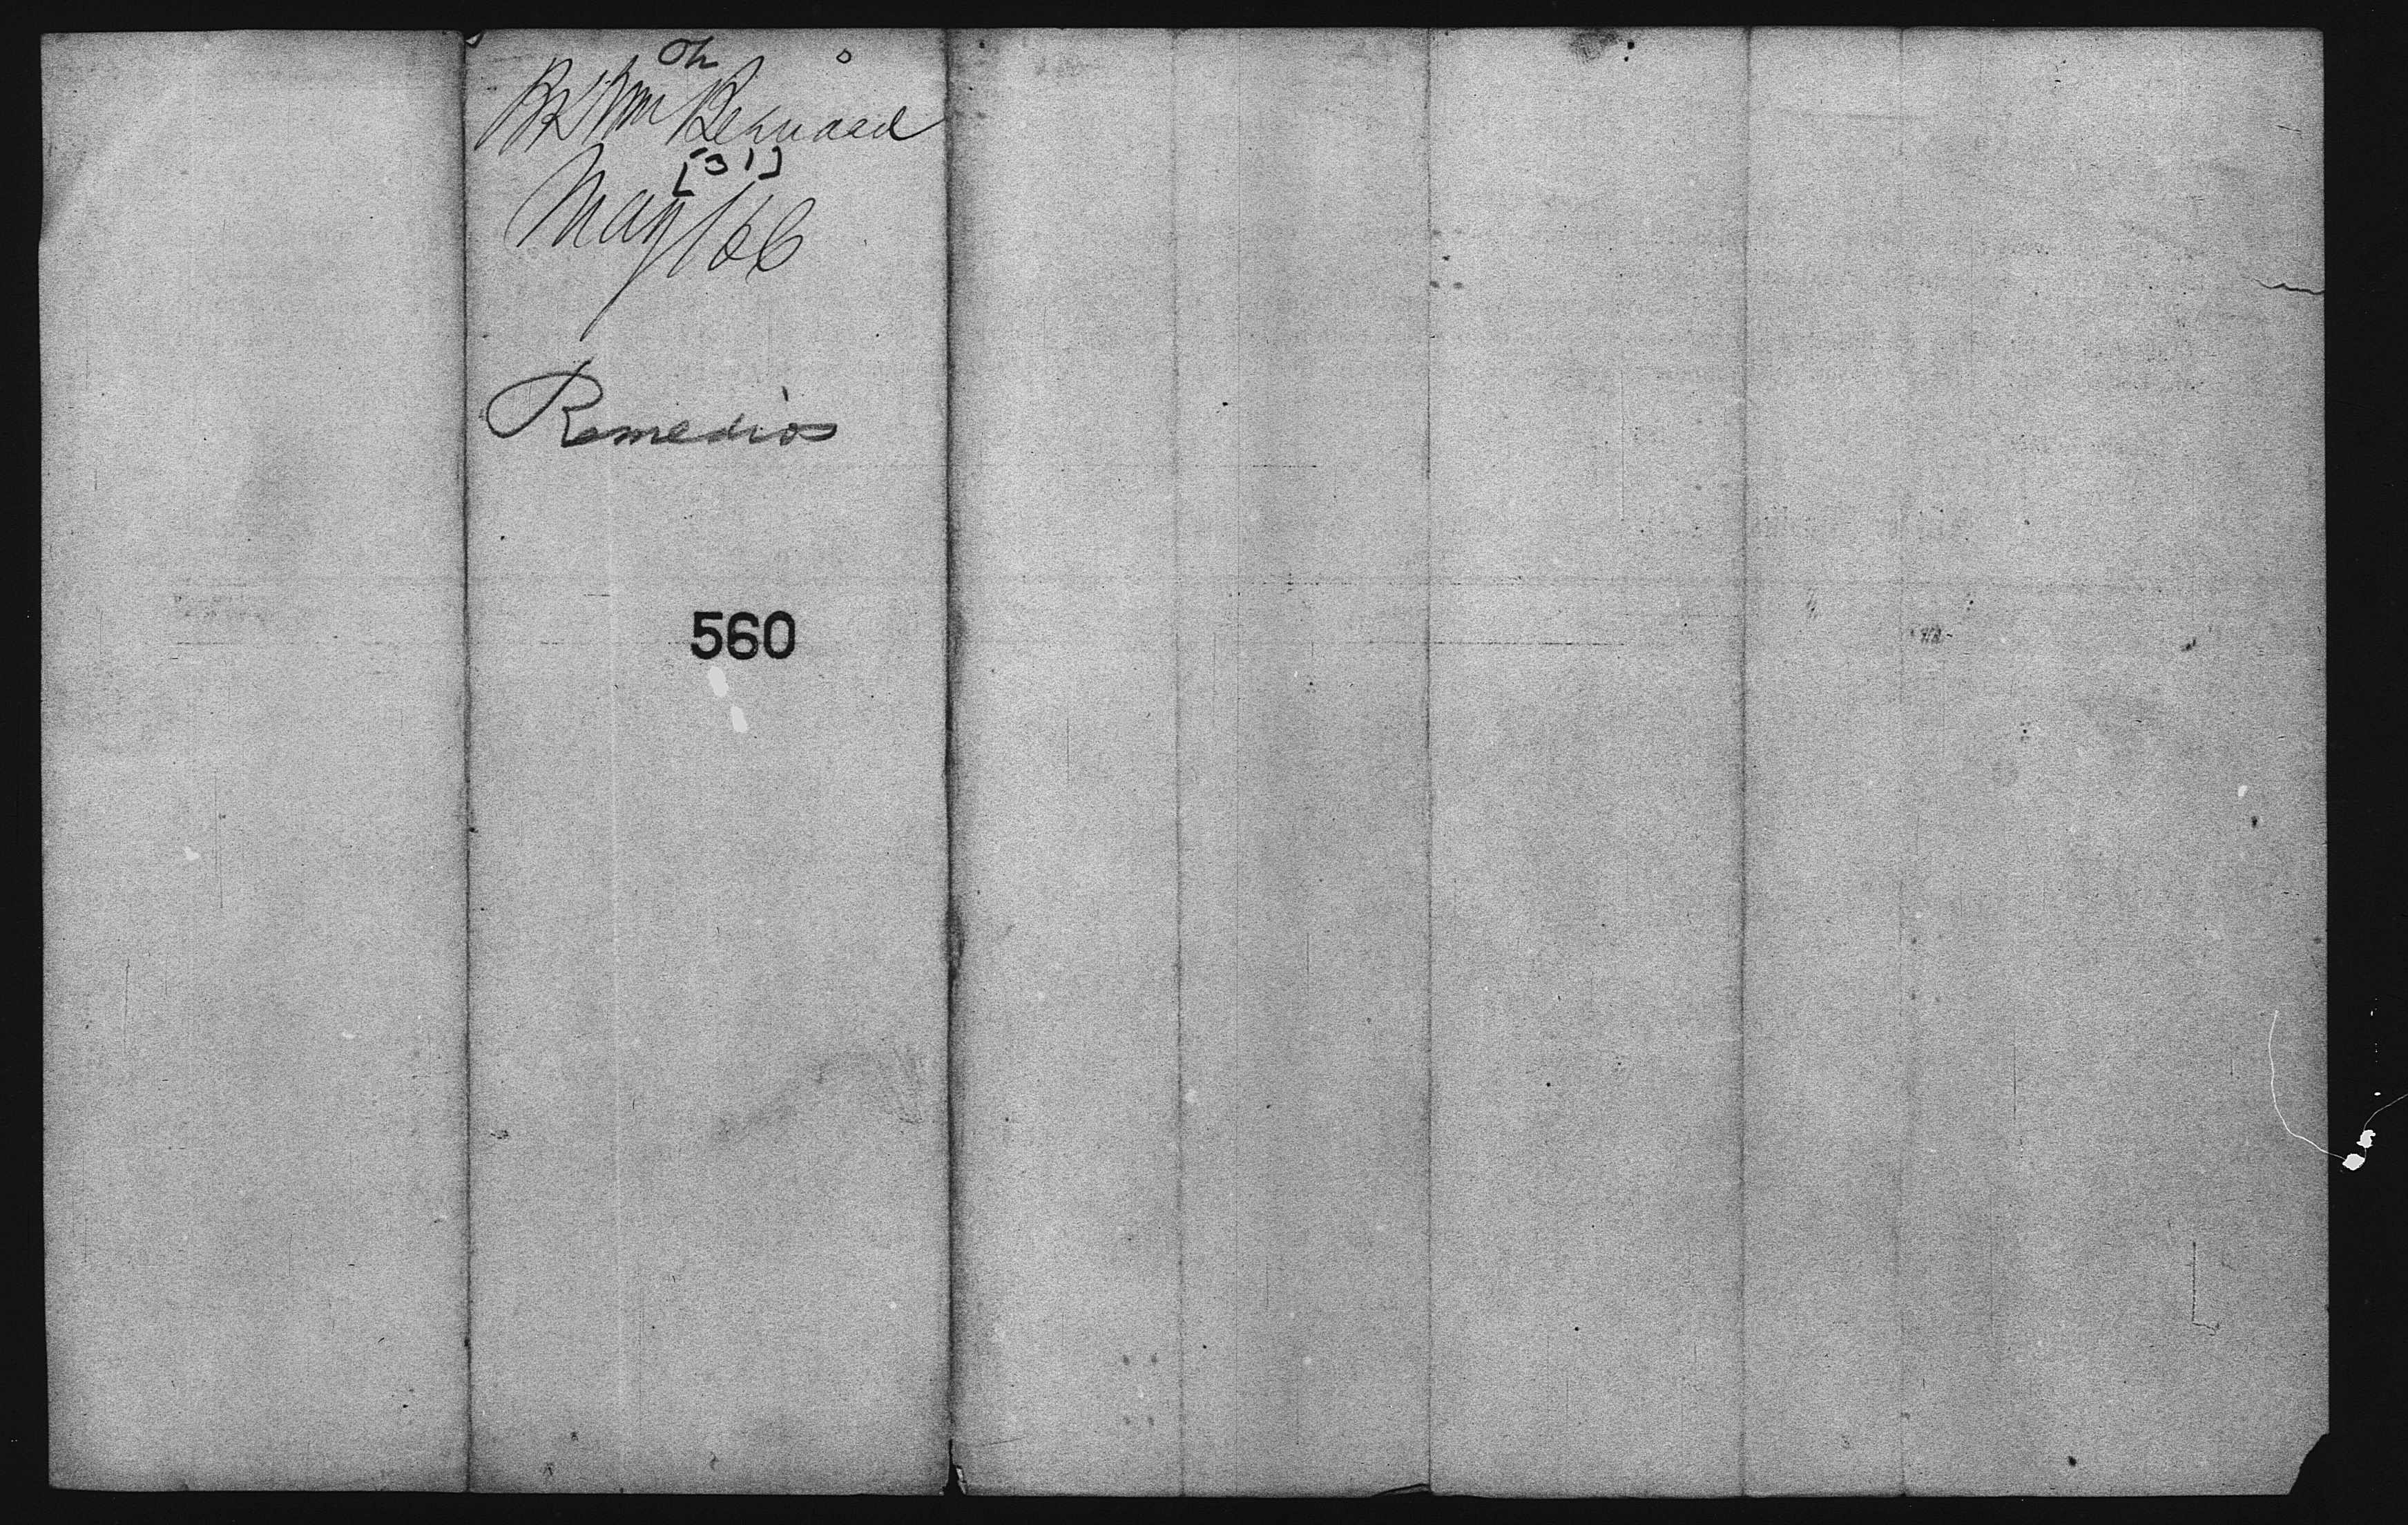 Oh
Wm Bernard
[31]
May/66
Remedios
560